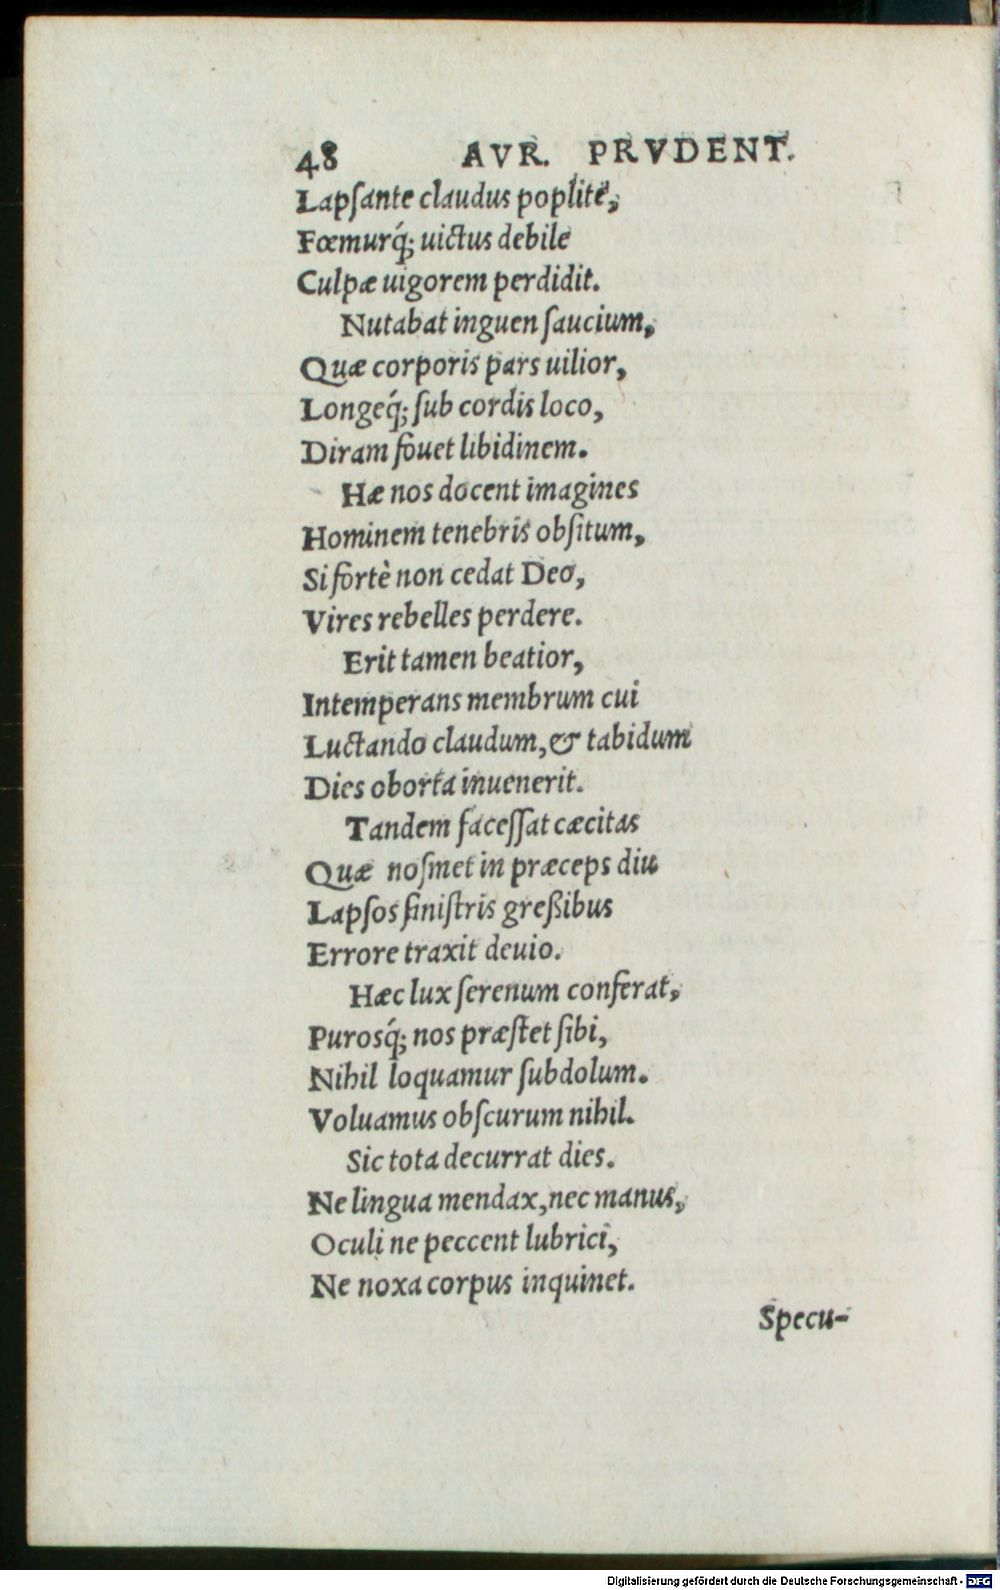 48 AVR. PRVDENT.
Lapſante claudus poplite,
Fœmurq́; uictus debile
Culpæ uigorem perdidit.
Nutabat inguen ſaucium,
Quæ corporis pars uilior,
Longeq́; ſub cordis loco,
Diram fouet libidinem.
Hæ nos docent imagines
Hominem tenebris obſitum,
Si fortè non cedat Deo,
Vires rebelles perdere.
Erit tamen beatior,
Intemperans membrum cui
Luctando claudum, & tabidum
Dies oborta inuenerit.
Tandem faceſſat cæcitas
Quæ noſmet in præceps diu
Lapſos ſiniſtris greßibus
Errore traxit deuio.
Hæc lux ſerenum conferat,
Purosq́; nos præſtet ſibi,
Nihil loquamur ſubdolum.
Voluamus obſcurum nihil.
Sic tota decurrat dies.
Ne lingua mendax, nec manus,
Oculi ne peccent lubrici,
Ne noxa corpus inquinet.
Specu-
Digitalisierung gefördert durch die Deutsche Forschungsgemeinschaft - DFG